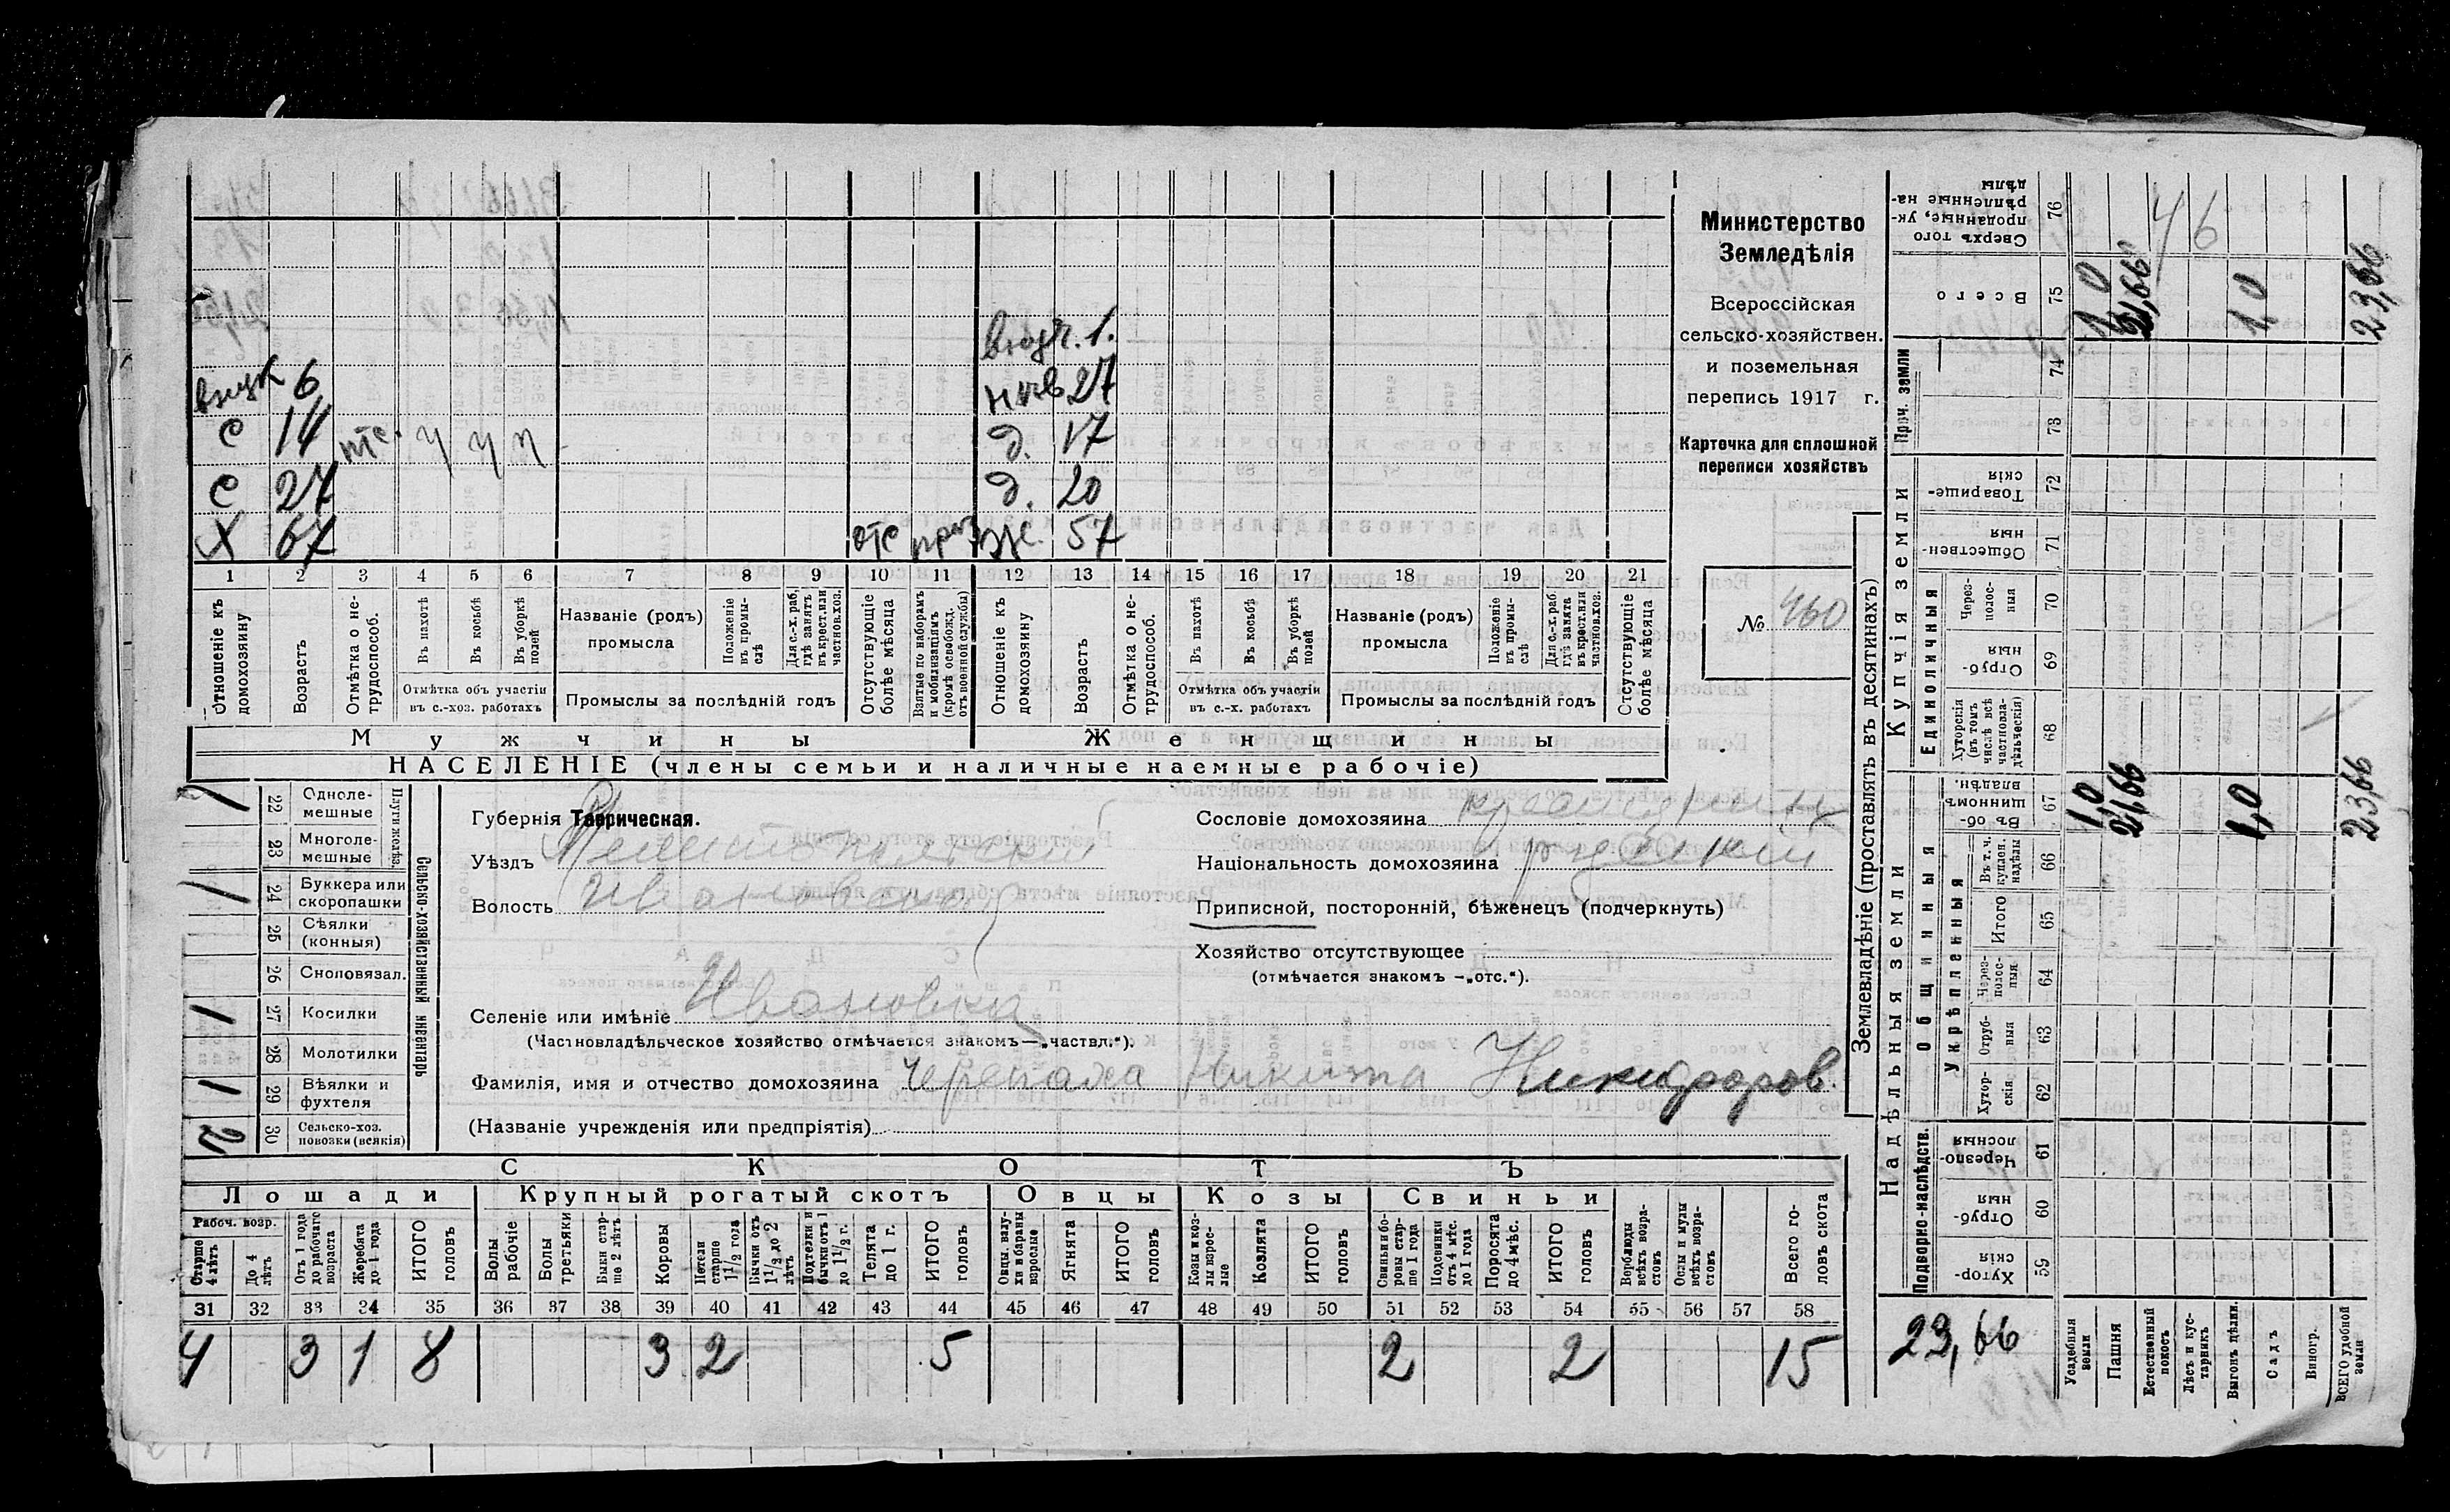 внучк. 1.
внук 6 нев 27
с 14 ч ч п д. 17
с 27 д. 20
Х 67 отс приз же. 57
1 2 3 4 5 6 7 8 9 10 11 12 13 14 15 16 17 18 19 20 21
Отношеніе къ домохозяину
Возрастъ
Отмѣтка о не-трудоспособ.
Въ пахотѣ
Въ косьбѣ
Въ уборкѣ полей
Отмѣтка объ участіи
въ с.-хоз. работахъ
Названіе (родъ)
промысла
Положеніе въ промы-слѣ
Для с.-х. раб. гдѣ занятъ въ крест. или частнов. хоз.
Промыслы за послѣдній годъ
Отсутствующіе болѣе мѣсяца
Взятые по наборамъ и мобилизаціямъ (кромѣ освобожд. отъ военной службы)
Отношеніе къ домохозяину
Возрастъ
Отмѣтка о не-трудоспособ.
Въ пахотѣ
Въ косьбѣ
Въ уборкѣ полей
Отмѣтка объ участіи
въ с.-х. работахъ
Названіе (родъ)
промысла
Положеніе въ промы-слѣ
Для с.-х. раб. гдѣ занята въ крест. или частнов. хоз.
Промыслы за послѣдній годъ
Отсутствующіе болѣе мѣсяца
Мужчины Женщины
НАСЕЛЕНІЕ (члены семьи и наличные наемные рабочіе)
Министерство
Земледѣлія
Всероссійская
сельско-хозяйствен.
и поземельная
перепись 1917 г.
Карточка для сплошной
переписи хозяйствъ
№ 460
Сельско-хозяйственный инвентарь
Плуги желѣз.
1 22 Одноле-мешные
23 Многоле-мешные
1 24 Буккера или скоропашки
25 Сѣялки (конныя)
26 Сноповязал.
1 27 Косилки
28 Молотилки
1 29 Вѣялки и фухтеля
2 30 Сельско-хоз. повозки (всякія)
Губернія Таврическая.
Уѣздъ Мелитопольскій
Волость Ивановская
Селеніе или имѣніе Ивановка
(Частновладѣльческое хозяйство отмѣчается знакомъ—„частвл.“).
Фамилія, имя и отчество домохозяина Черепаха Никита Никифоров.
(Названіе учрежденія или предпріятія)
Сословіе домохозяина крестьянин
Національность домохозяина русскій
Приписной, посторонній, бѣженецъ (подчеркнуть)
Хозяйство отсутствующее
(отмѣчается знакомъ —„отс.“).
СКОТЪ
Лошади Крупный рогатый скотъ Овцы Козы Свиньи
Рабоч. возр.
Старше 4 лѣтъ
До 4 лѣтъ
Отъ 1 года до рабочаго возраста
Жеребята до 1 года
ИТОГО головъ
Волы рабочіе
Волы третьяки
Быки стар-ше 2 лѣтъ
Коровы
Нетели старше 1 1/2 года
Бычки отъ 1 1/2 до 2 лѣтъ
Подтелки и бычки отъ 1 до 1 1/2 г.
Телята до 1 г.
ИТОГО головъ
Овцы, валу-хи и бараны взрослые
Ягнята
ИТОГО головъ
Козы и коз-лы взрос-лые
Козлята
ИТОГО головъ
Свиньи и бо-ровы стар-ше 1 года
Подсвинки отъ 4 мѣс. до 1 года
Поросята до 4 мѣс.
ИТОГО головъ
Верблюды всѣхъ возра-стовъ
Ослы и мулы всѣхъ возра-стовъ
Всего го-ловъ скота
31 32 33 34 35 36 37 38 39 40 41 42 43 44 45 46 47 48 49 50 51 52 53 54 55 56 57 58
4 3 1 8 3 2 5 2 2 15
Землевладѣніе (проставлять въ десятинахъ)
Сверхъ того проданные, ук-рѣпленные на-дѣлы 76 46
Всего 75 1,0 21,66 1,0 23,66
Прич. земли 74
73
Купчія земли
Товарище-скія 72
Обществен-ныя 71
Единоличныя
Через-полос-ныя 70
Отруб-ныя 69
Хуторскія (въ томъ числѣ всѣ частновла-дѣльческія) 68
Надѣльныя земли
Общинныя
Въ об-щинномъ владѣн. 67 1,0 21,66 1,0 23,66
Укрѣпленныя
Въ т. ч. куплен. надѣлы 66
Итого 65
Через-полос-ныя 64
Отруб-ныя 63
Хутор-скія 62
Подворно-наслѣдств.
Черезпо-лосныя 61
Отруб-ныя 60
Хутор-скія 59
23,66
Усадебныя земли
Пашня
Естественный покосъ
Лѣсъ и кус-тарникъ
Выгонъ дѣлин.
Садъ
Виногр.
ВСЕГО удобной земли